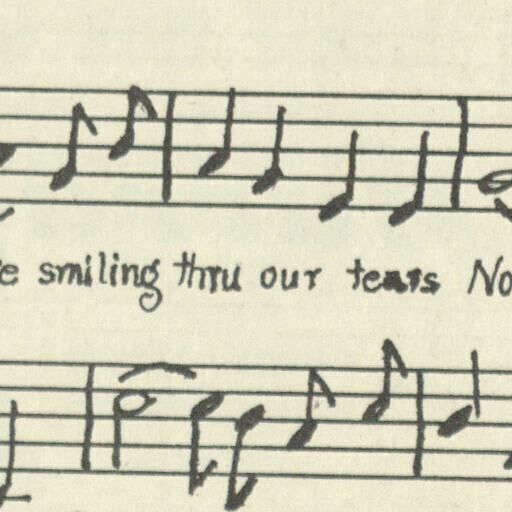 e smiling thru our tears No